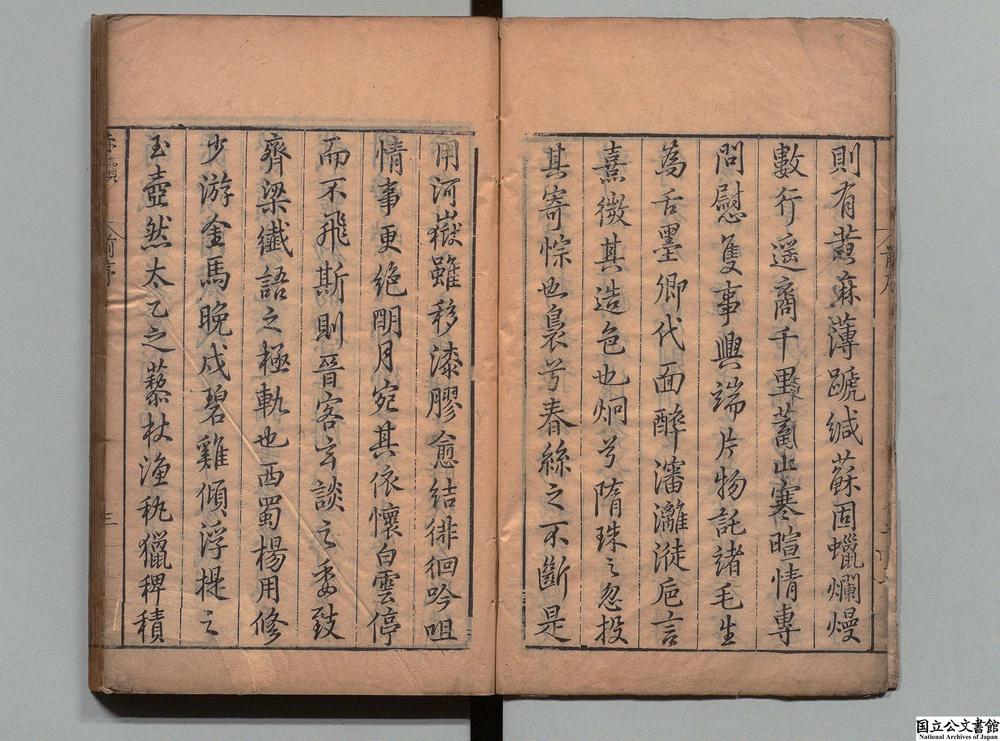 則有黃麻薄蹏緘蘇固蠟爛熳
數行遥裔千里蓄止寒暄情專
問慰隻事興端片物託諸毛生
為舌墨卿代面醉瀋灕漇巵言
熹微其造色也炯兮隋珠之忽投
其寄悰也裊兮春絲之不斷是
用河嶽雖移漆膠愈結徘徊吟咀
情事更絕朙月宛其依懷白雲停
而不飛斯則晉客玄談之委致
齊梁纖語之極軌也西蜀楊用修
少游金馬晚戍碧雞傾浮提之
玉壺然太乙之藜杖漁秇獵稗積
前序
三
国立公文書館
National Archives of Japan